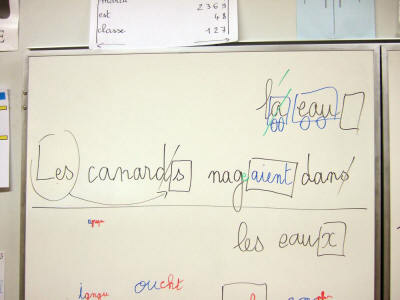 2369
est 48
classe 127
la eau
Les canards nageaient dans
les eaux
oucht